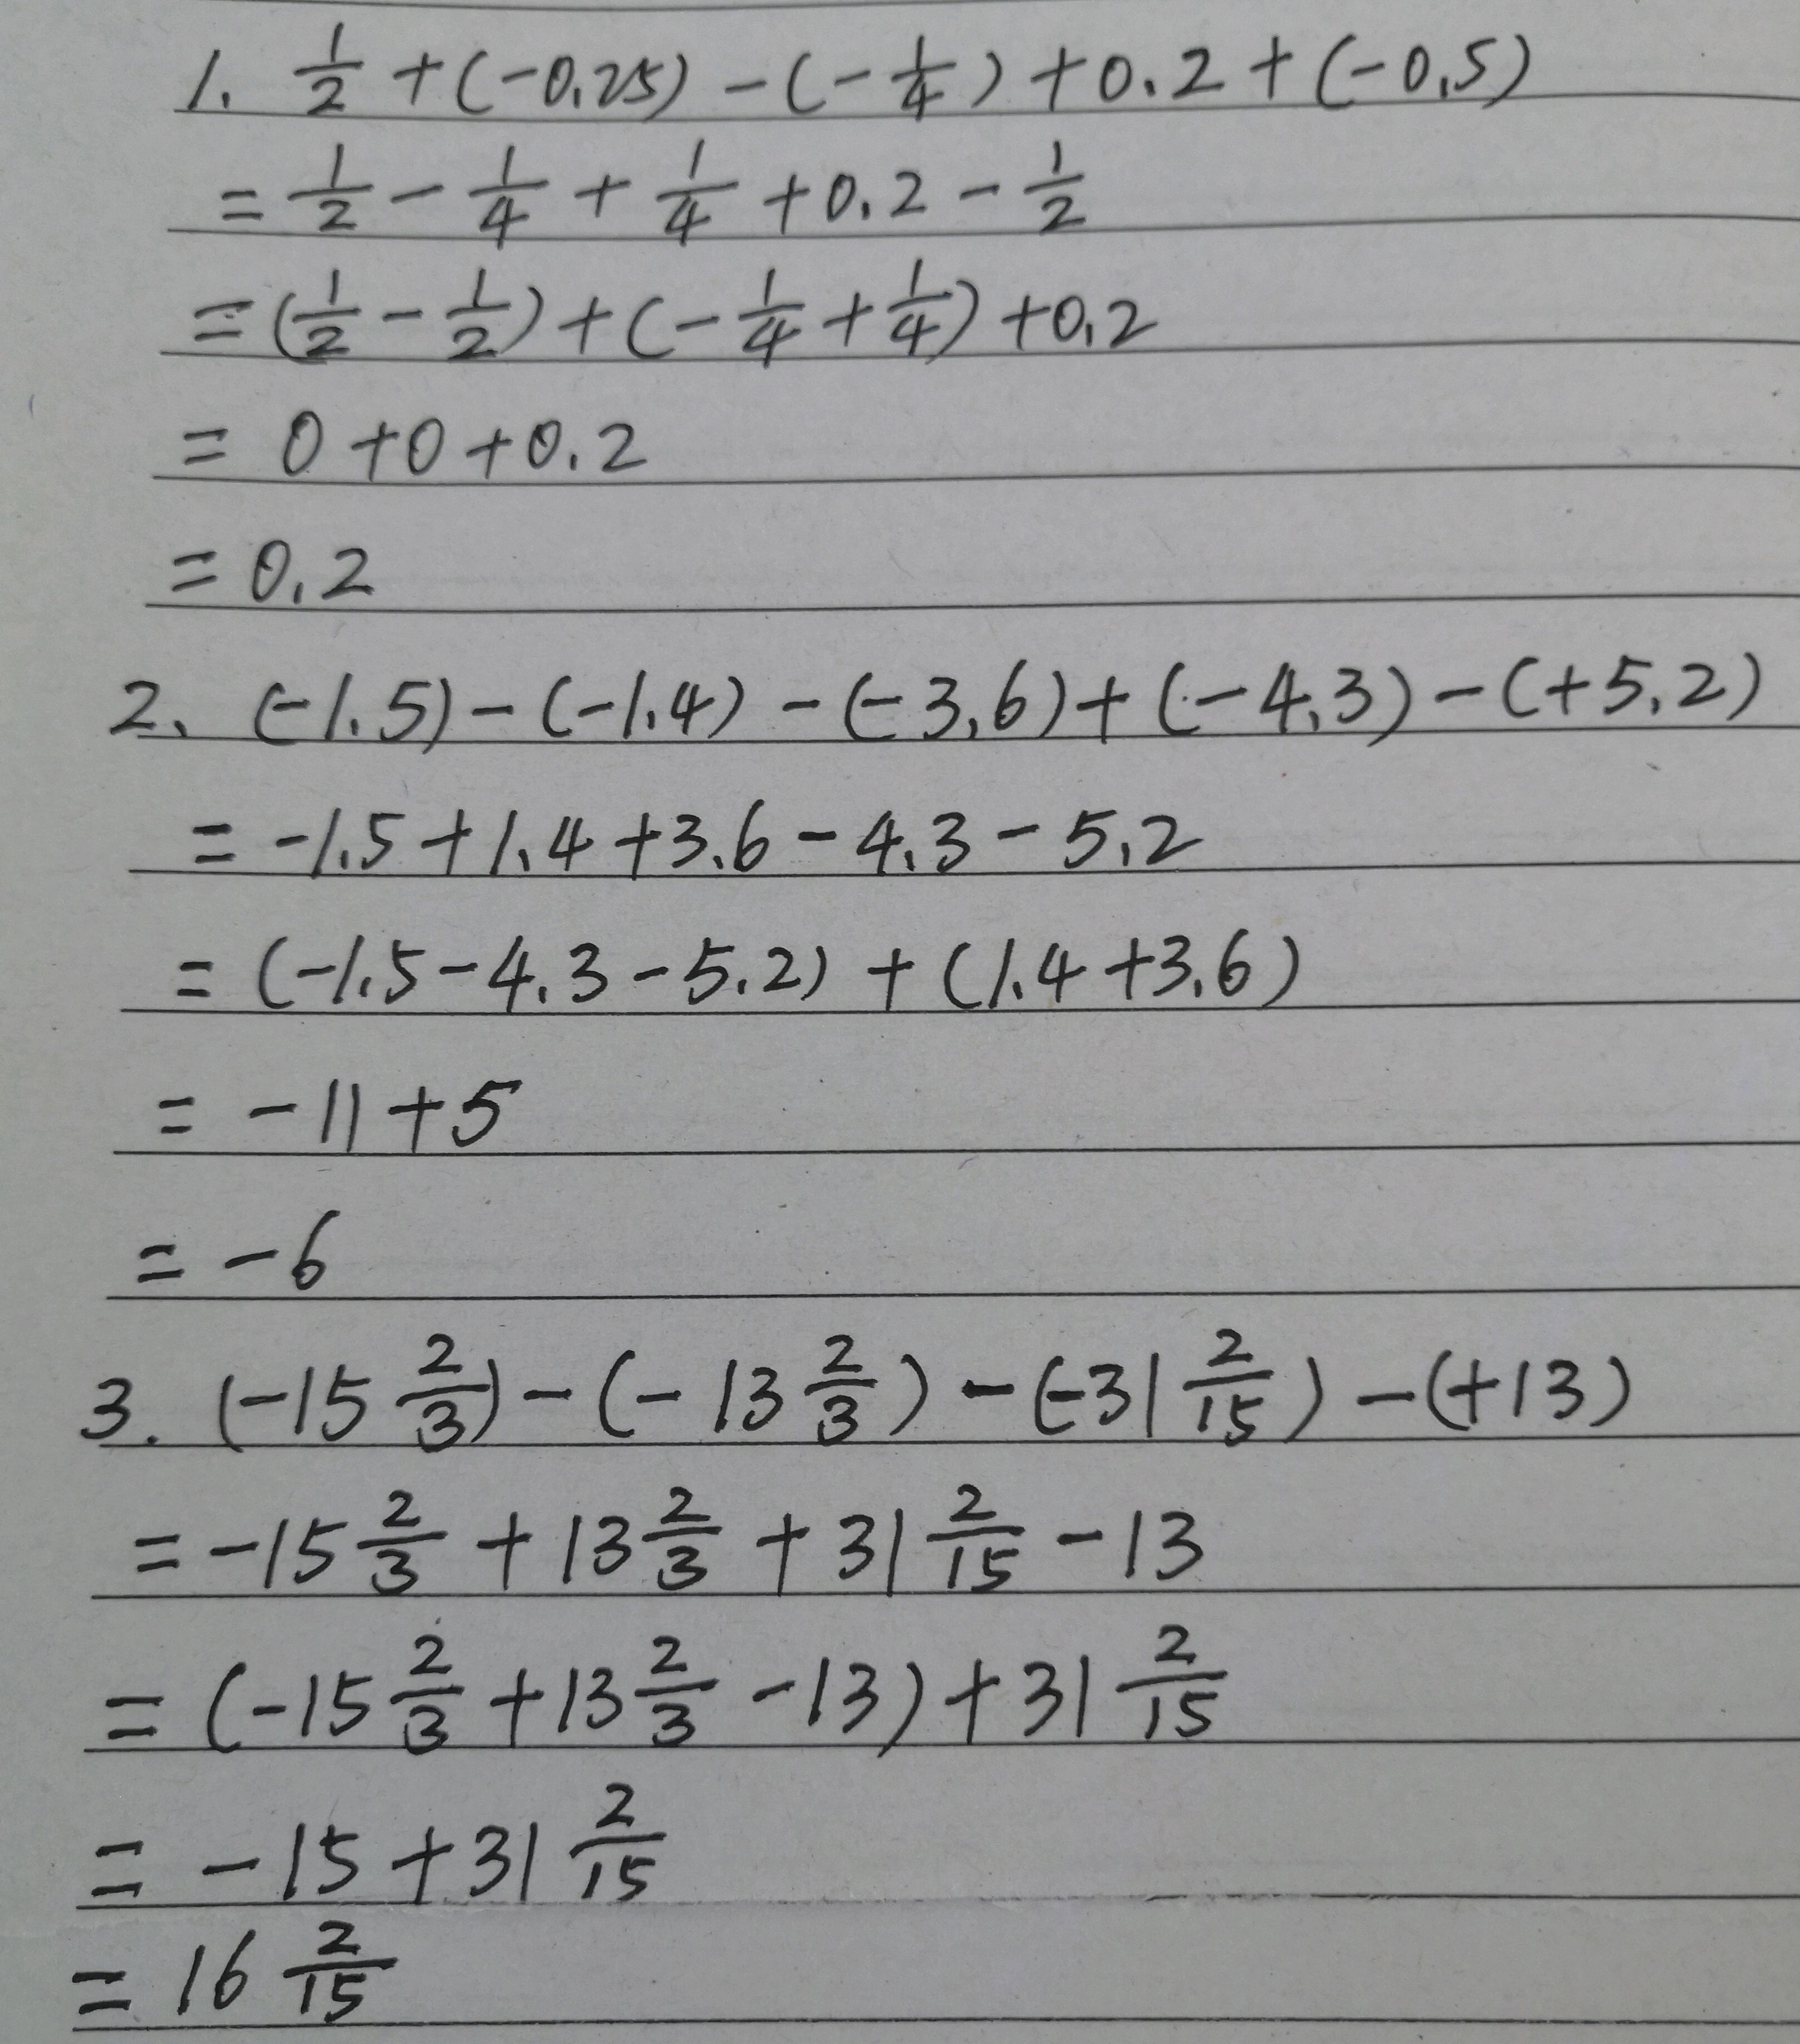 1. 1/2 + (-0.25) - (- 1/4) + 0.2 + (-0.5)
= 1/2 - 1/4 + 1/4 + 0.2 - 1/2
= (1/2 - 1/2) + (- 1/4 + 1/4) + 0.2
= 0 + 0 + 0.2
= 0.2
2. (-1.5) - (-1.4) - (-3.6) + (-4.3) - (+5.2)
= -1.5 + 1.4 + 3.6 - 4.3 - 5.2
= (-1.5 - 4.3 - 5.2) + (1.4 + 3.6)
= -11 + 5
= -6
3. (-15 2/3) - (-13 2/3) - (-31 2/15) - (+13)
= -15 2/3 + 13 2/3 + 31 2/15 - 13
= (-15 2/3 + 13 2/3 - 13) + 31 2/15
= -15 + 31 2/15
= 16 2/15